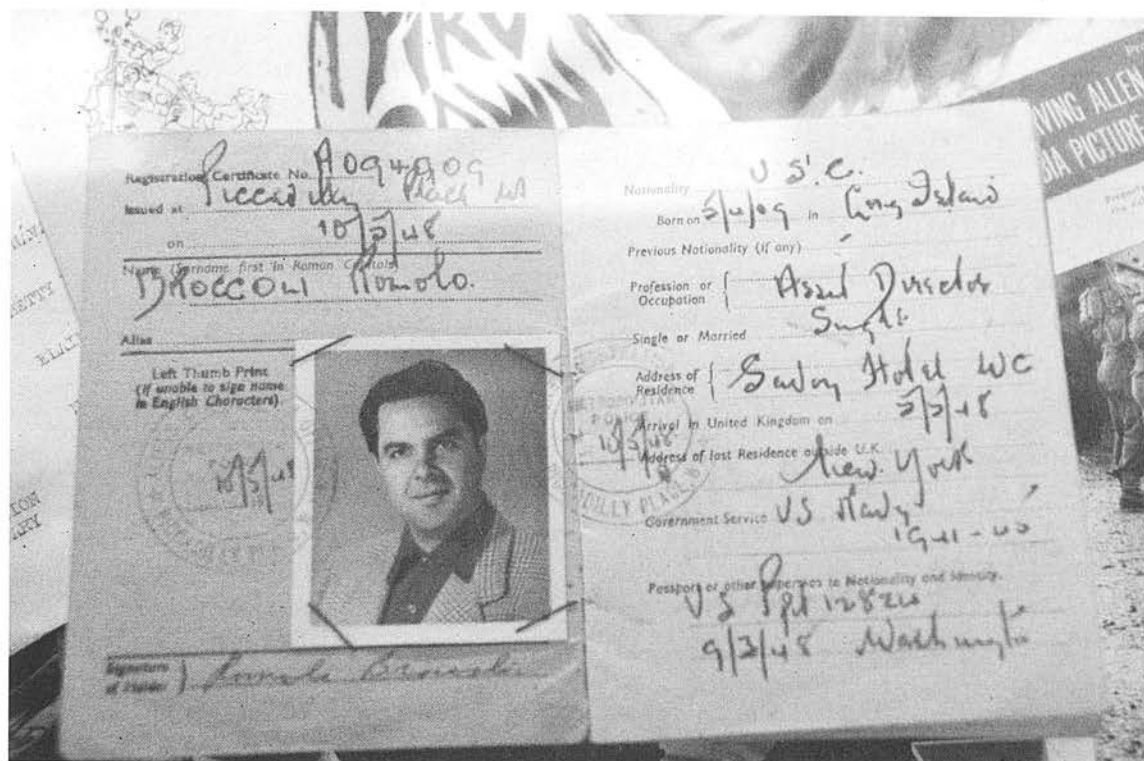 Registration Certificate No. A094909
Issued at Piccadilly Place W1
on 10/5/48
Name (Surname first in Roman Capitals)
BROCCOLI Romolo.
Alias
Left Thumb Print
(if unable to sign name
in English Characters).
10/5/48
Signature
of Holder
Nationality U.S.C.
Born on 5/4/09 in Long Island
Previous Nationality (if any)
Profession or
Occupation
Asst Director
Single or Married Single
Address of
Residence
Savoy Hotel WC
Arrival in United Kingdom on 5/5/48
Address of last Residence outside U.K.
New York
Government Service US Navy
1941-45
Passport or other papers as to Nationality and Identity.
US Ppt
9/3/48 Washington
METROPOLITAN
POLICE
10/5/48
PICCADILLY PLACE W
RVING ALLEN
IA PICTURE